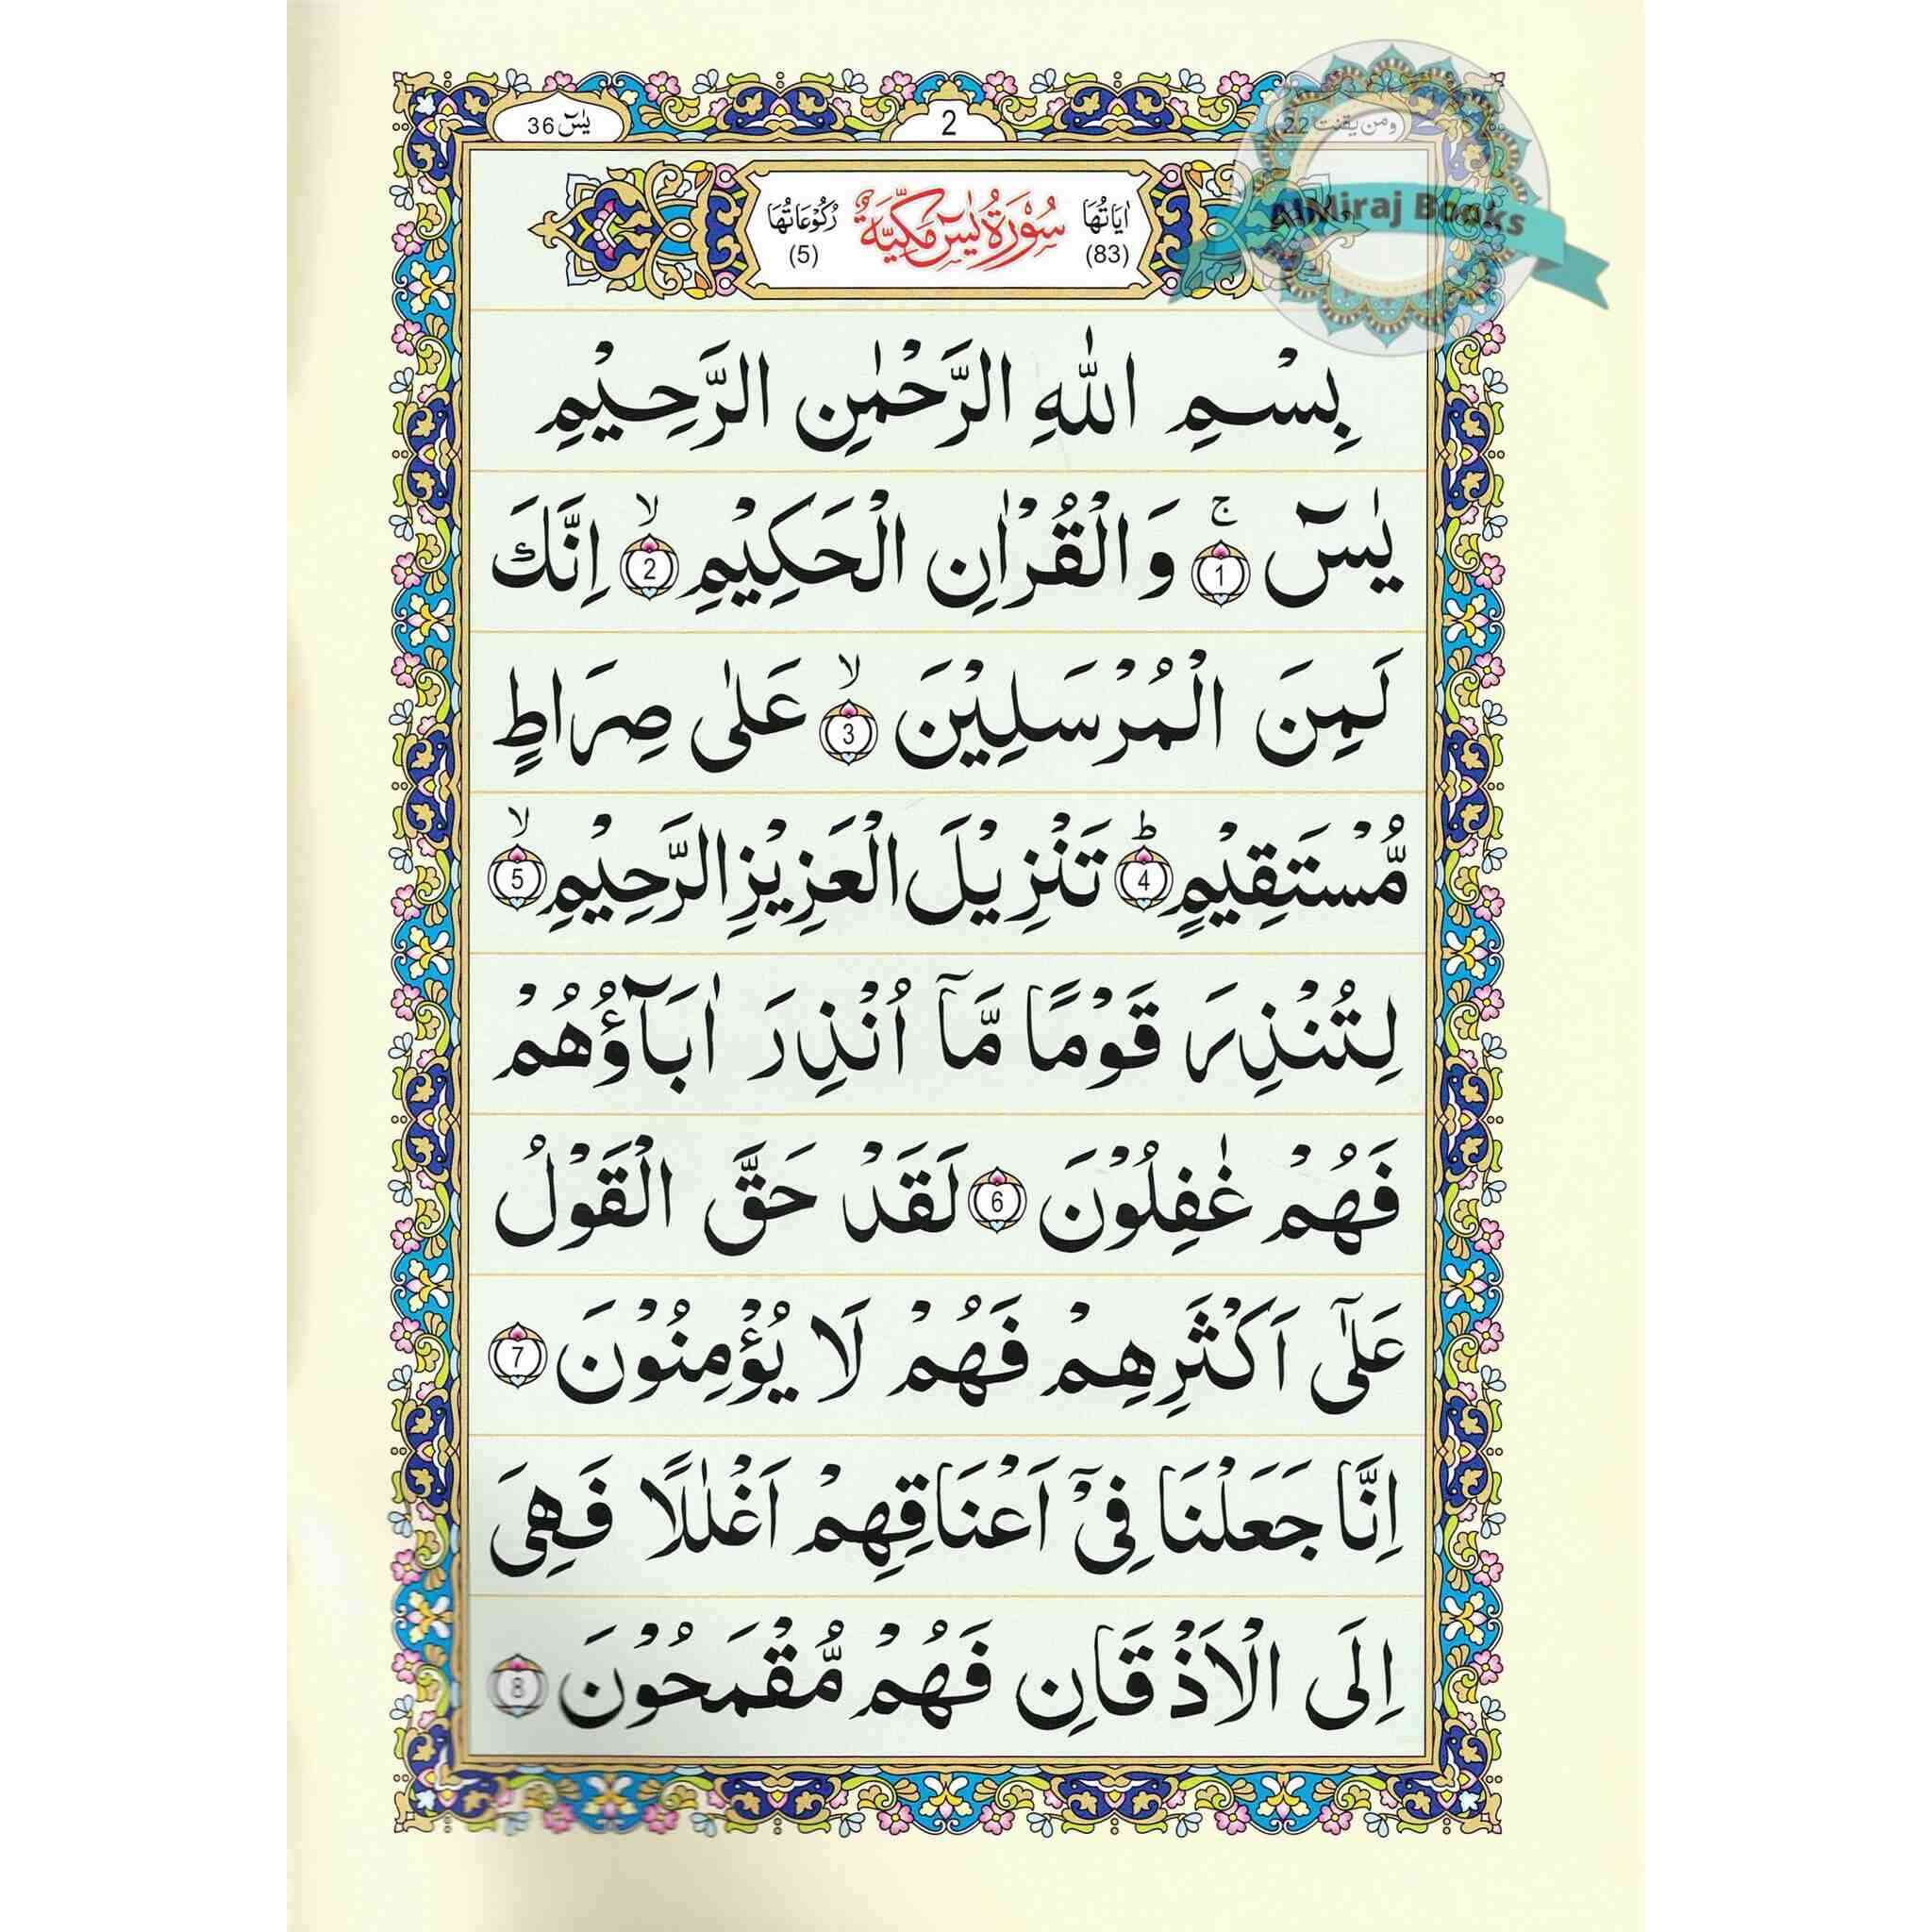 يٰسٓ 36
2
ومن يقنت 22
اٰيَاتُهَا (83) سُوْرَةُ يٰسٓ مَكِّيَّةٌ رُكُوْعَاتُهَا (5)
AlMiraj Books
بِسْمِ اللّٰهِ الرَّحْمٰنِ الرَّحِيْمِ
يٰسٓ ۚ 1 وَالْقُرْاٰنِ الْحَكِيْمِ ۙ 2 اِنَّكَ
لَمِنَ الْمُرْسَلِيْنَ ۙ 3 عَلٰى صِرَاطٍ
مُّسْتَقِيْمٍ ؕ 4 تَنْزِيْلَ الْعَزِيْزِ الرَّحِيْمِ ۙ 5
لِتُنْذِرَ قَوْمًا مَّآ اُنْذِرَ اٰبَآؤُهُمْ
فَهُمْ غٰفِلُوْنَ 6 لَقَدْ حَقَّ الْقَوْلُ
عَلٰٓى اَكْثَرِهِمْ فَهُمْ لَا يُؤْمِنُوْنَ 7
اِنَّا جَعَلْنَا فِيْٓ اَعْنَاقِهِمْ اَغْلٰلًا فَهِىَ
اِلَى الْاَذْقَانِ فَهُمْ مُّقْمَحُوْنَ 8